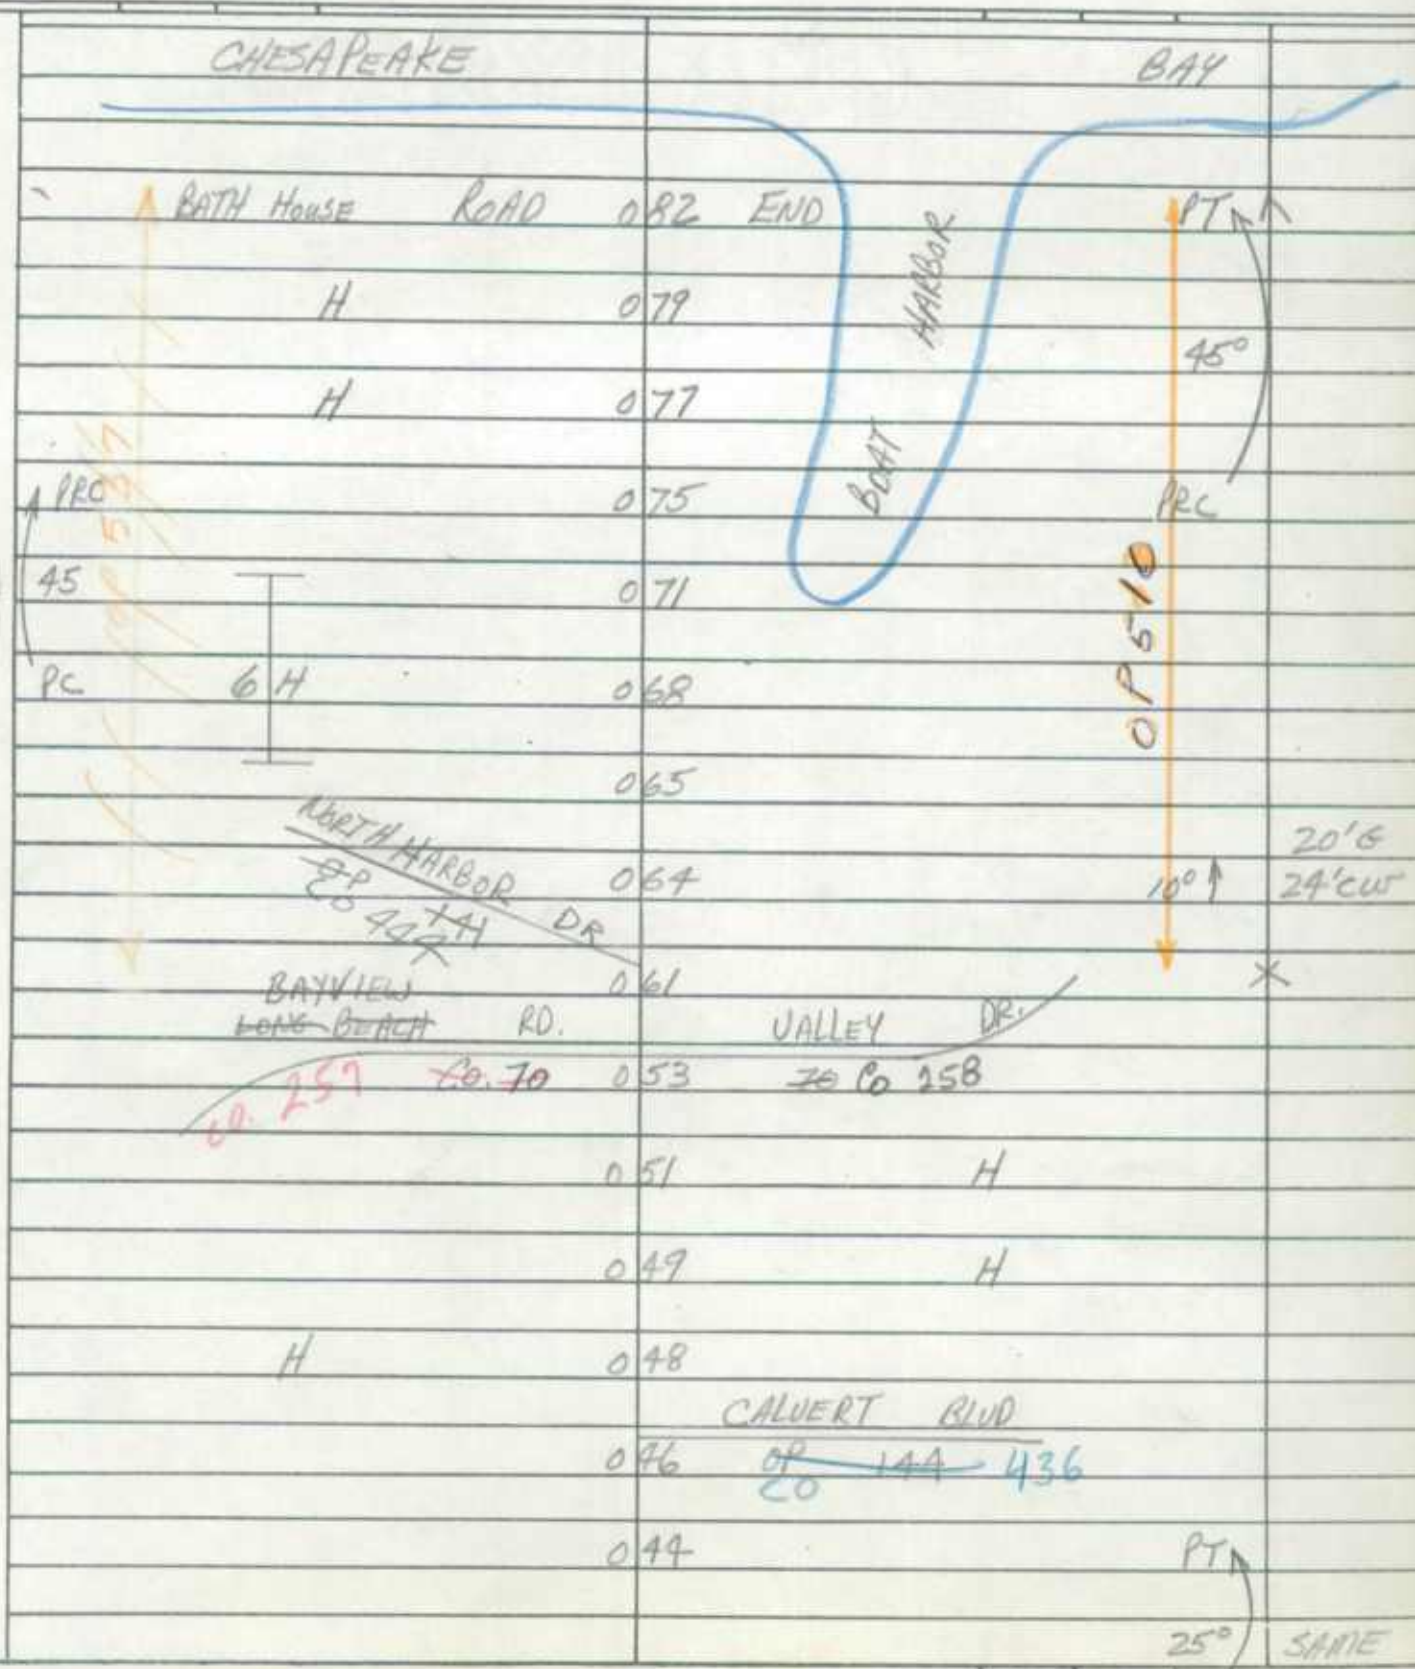 CHESAPEAKE BAY
BATH HOUSE ROAD 0 82 END PT
H 0 79
45°
H 0 77
BOAT HARBOR
PRC 0 75 PRC
OP 537
OP 510
45 0 71
PC 6 H 0 68
0 65
NORTH HARBOR DR
20' G
0 64 10° 24' CW
OP 141
CO 442
0 61 X
BAYVIEW
LONG BEACH RD. VALLEY DR.
CO. 257 Co. 70 0 53 70 Co 258
0 51 H
0 49 H
H 0 48
CALVERT BLVD
0 46 OP 144 436
CO
0 44 PT
25° SAME